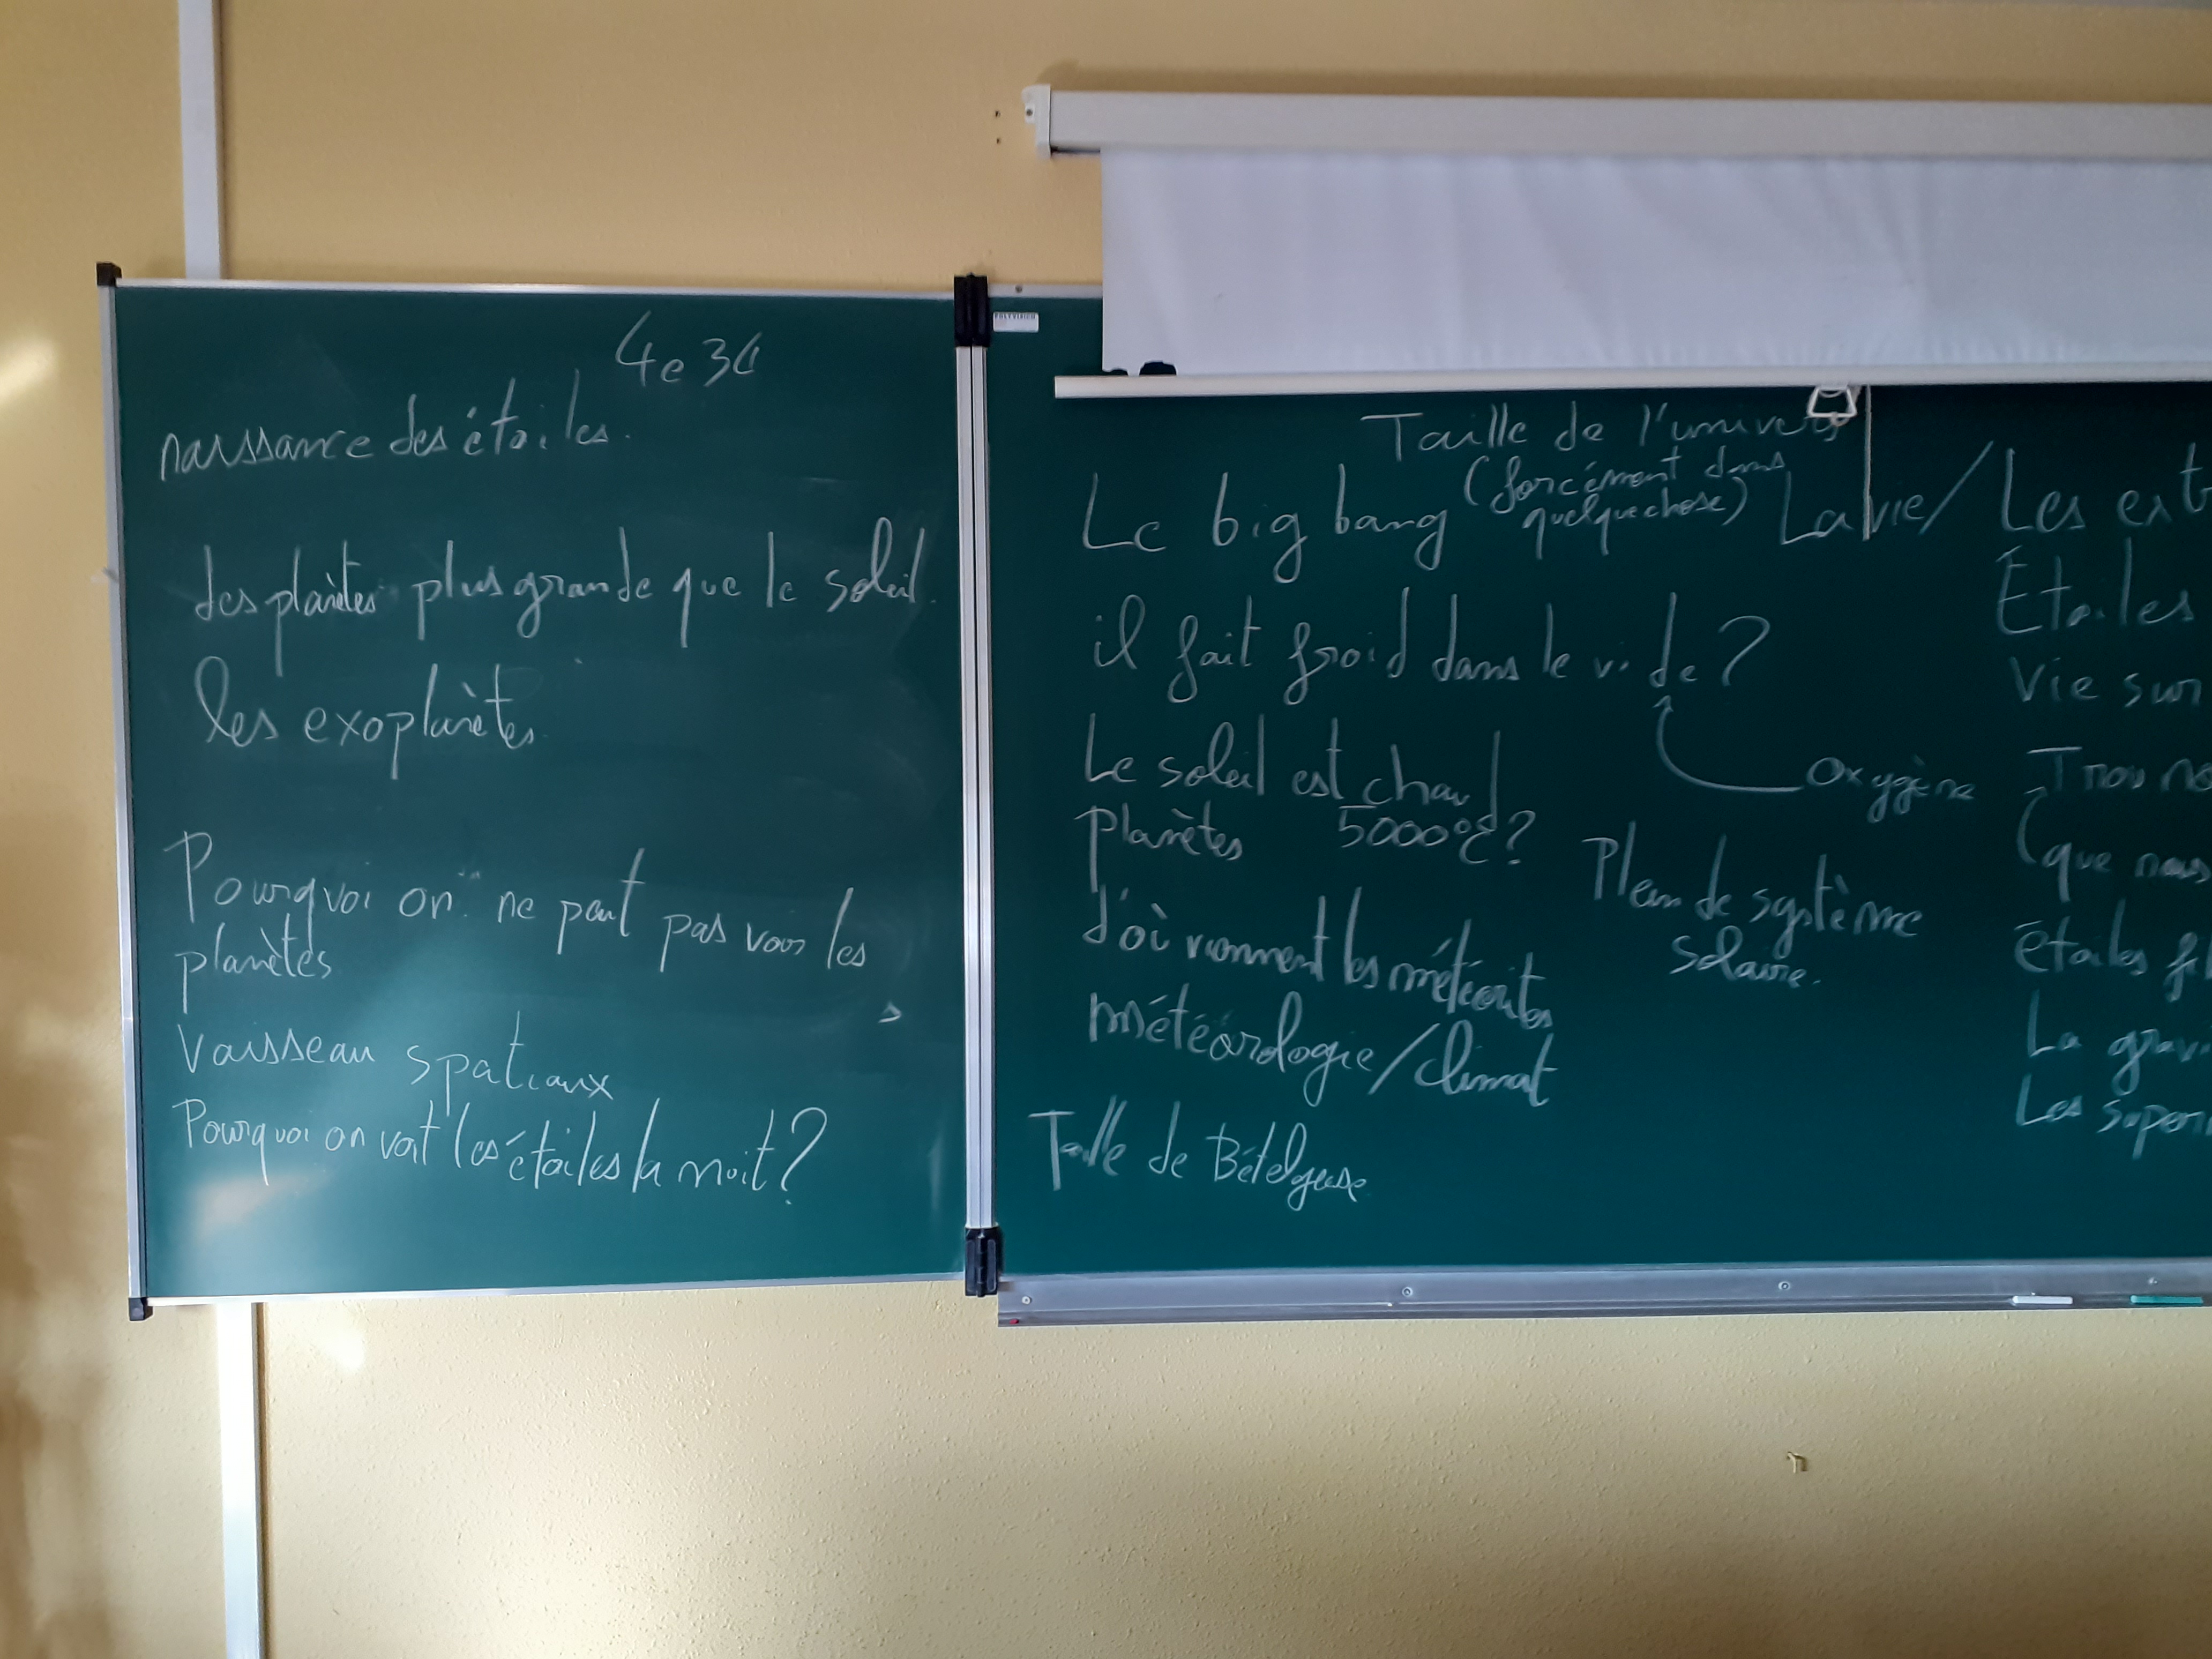 4e 3
naissance des étoiles.
des planètes plus grande que le soleil.
les exoplanètes
Pourquoi on ne peut pas voir les
planètes
Vaisseau spatiaux
Pourquoi on voit les étoiles la nuit?
POLYVISION
Taille de l'univers
(forcément dans
quelque chose)
Le big bang
La vie / Les ext
il fait froid dans le vide ?
Oxygène
Le soleil est chaud
5000°C ?
Planètes
Plan de système
solaire.
d'où viennent les météorites
météorologie / climat
Taille de Bételgeuse
Etoiles
Vie sur
Trou no
(que nous
étoiles fi
La grav
Les super